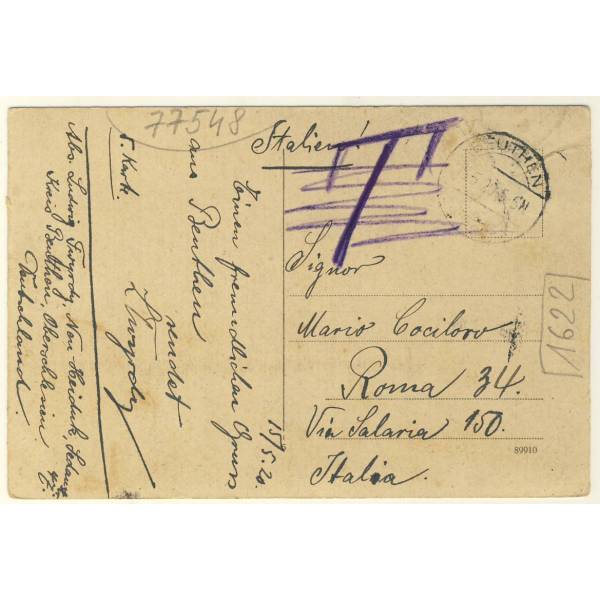 77548
Italien!
T
BEUTHEN
Signor
Mario Cociloro
Roma 34.
Via Salaria 150.
Italia.
1622
89910
15/5.20.
Einen freundlichen Gruss
aus Beuthen
sendet
5. Karte.
Abs. Ludwig
Kreis Beuthen, Oberschlesien.
Deutschland.